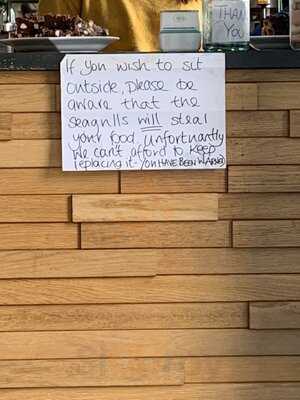 THANK
YOU
If you wish to sit
outside, please be
aware that the
seagulls will steal
your food, Unfortunantly
We can't afford to keep
replacing it - YOU HAVE BEEN WARNED